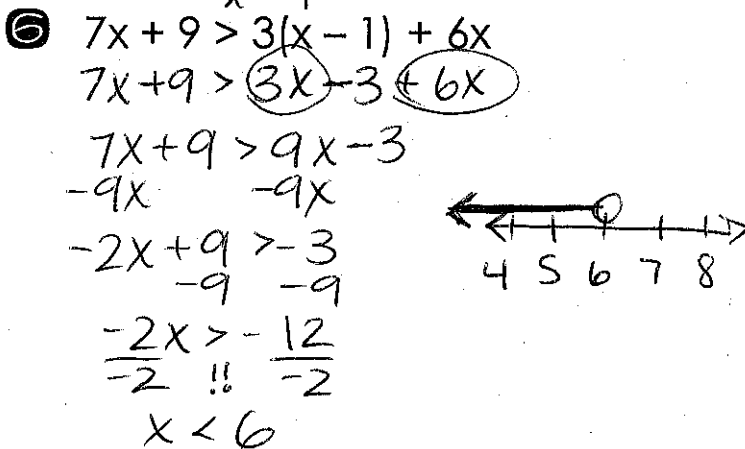 6 7x + 9 > 3(x − 1) + 6x
7x+9 > 3x-3+6x
7x+9 > 9x-3
-9x -9x
-2x+9 > -3
-9 -9
-2x > -12
-2 !! -2
x < 6
4 5 6 7 8